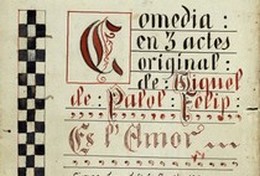 Comedia :
en 3 actes
original :
de : Miquel
de : Palol : Felip :
Es l'Amor ...